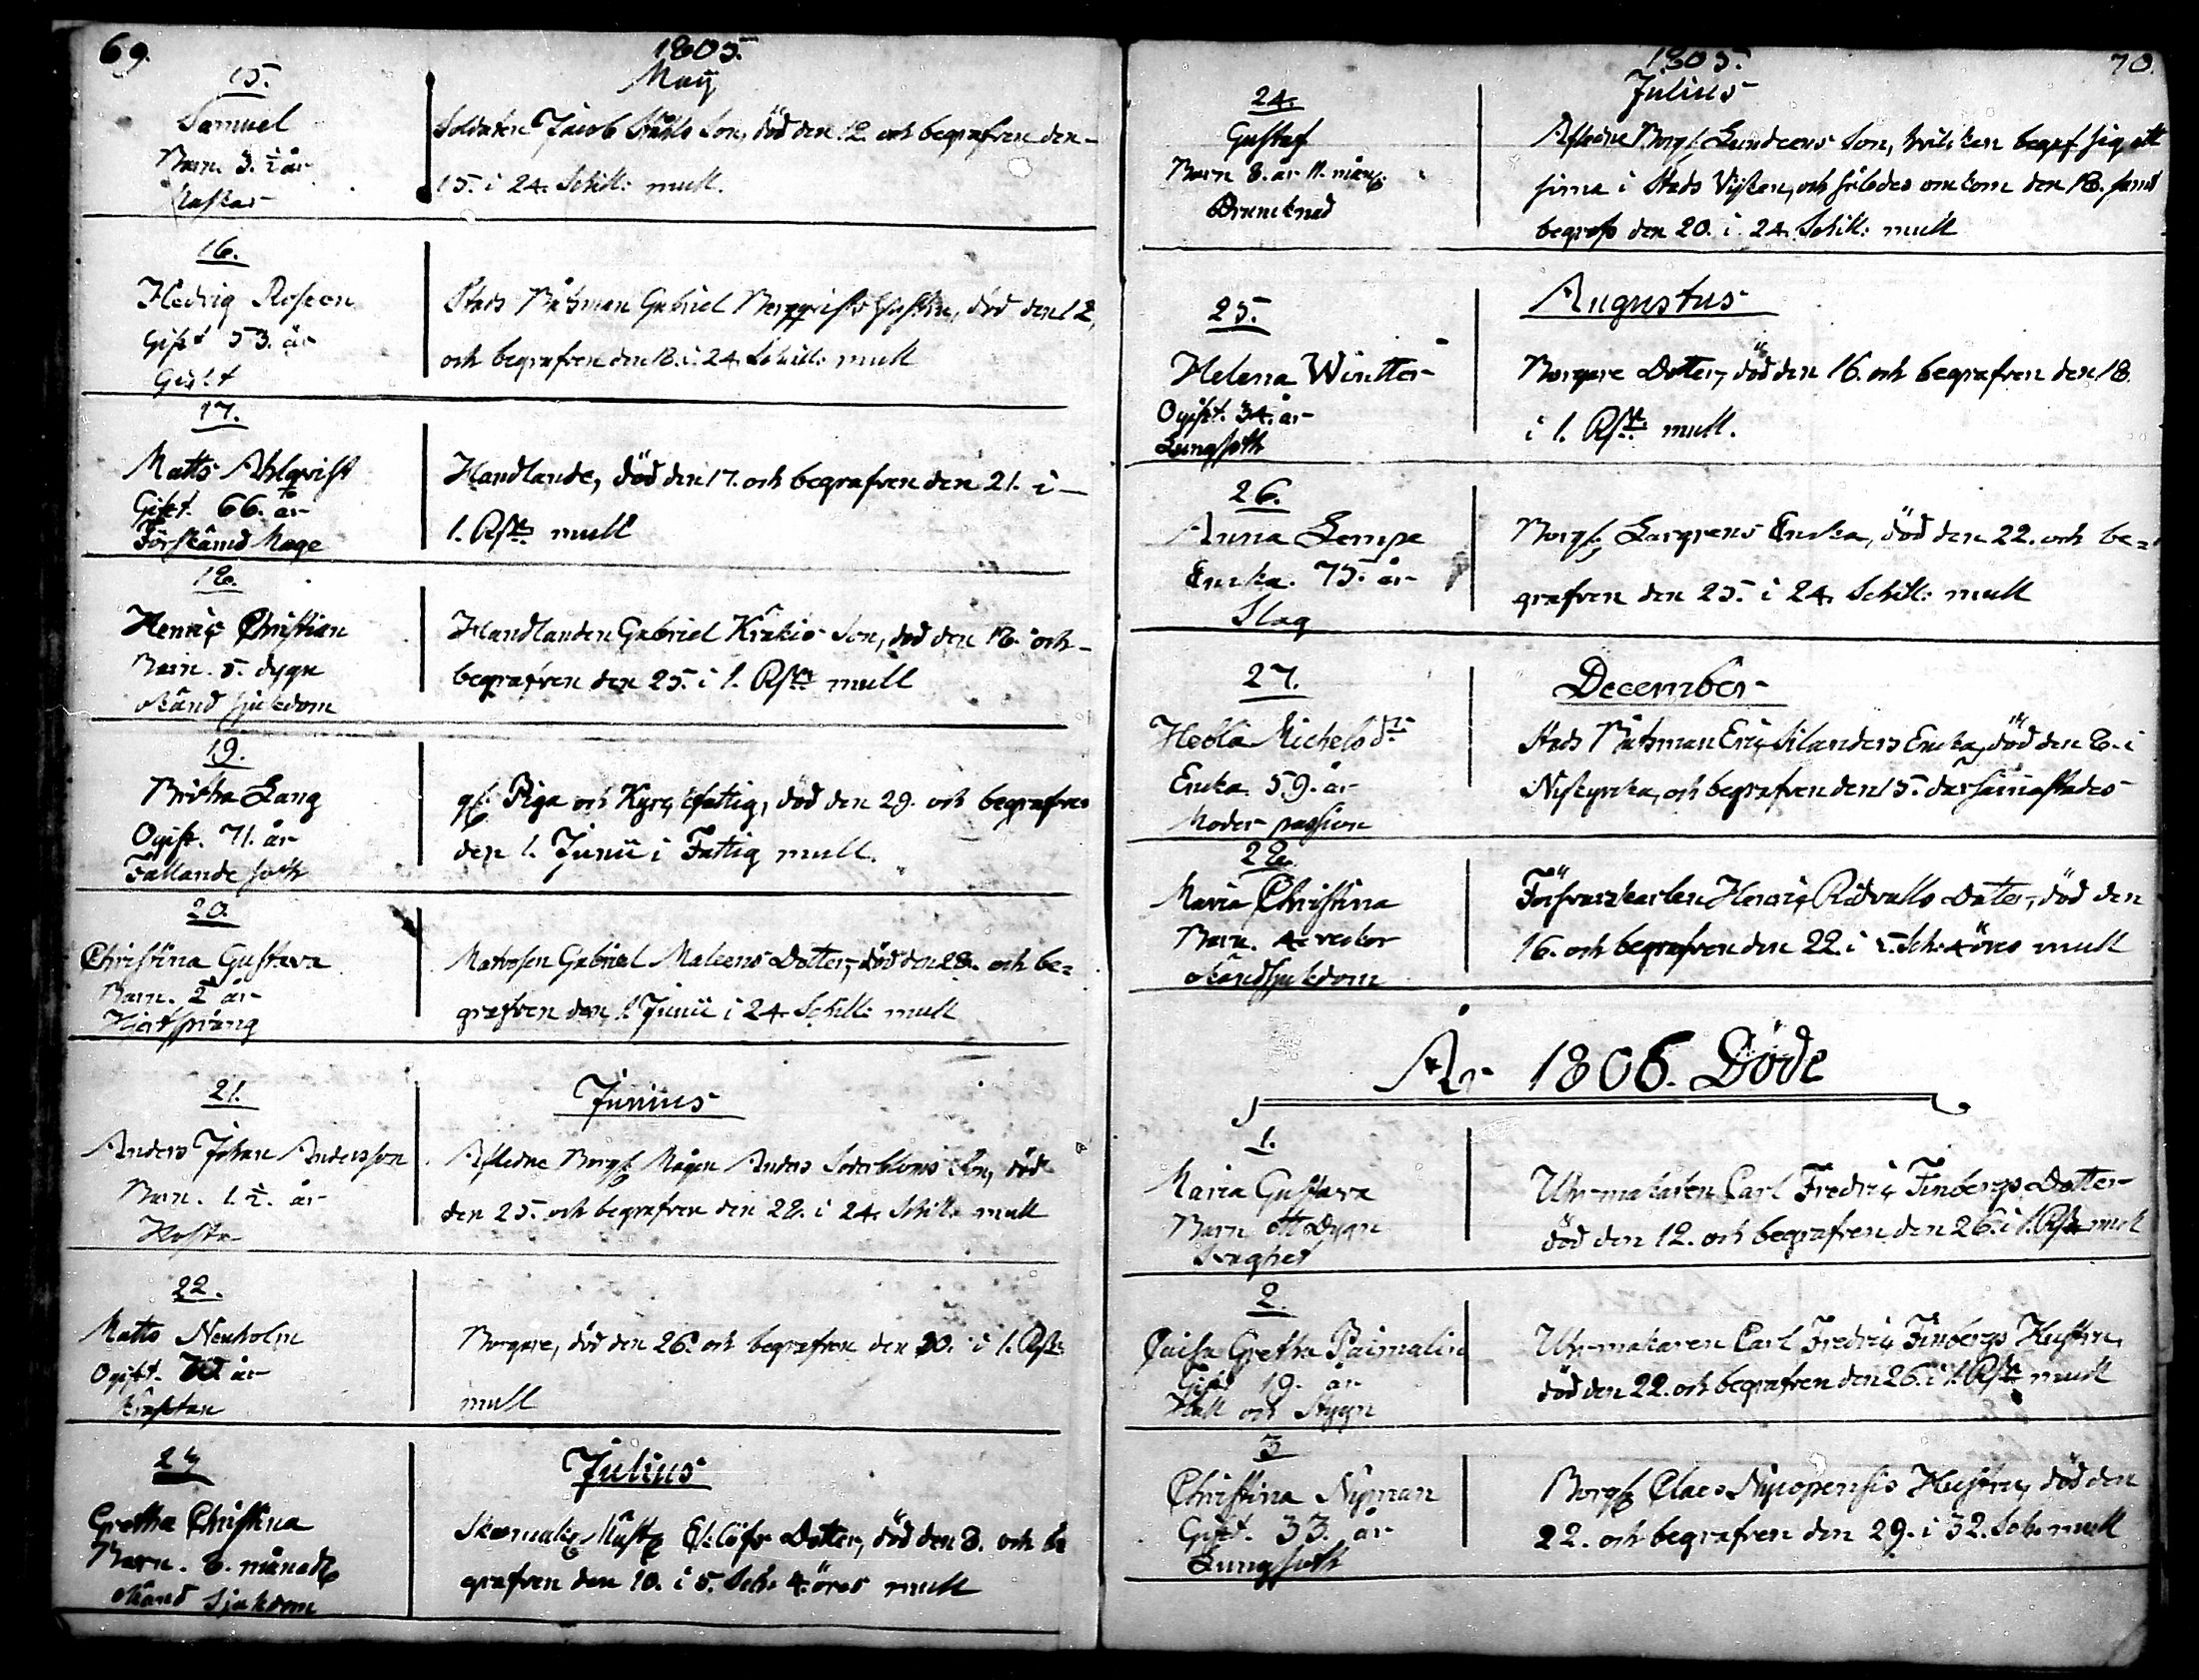 69.
1805.
Maij
15.
Samuel
Barn. 3. ½ år
Soldaten Jacob Ståhls Son, död den 12. och begrafven den
15. i 24. Schill: mull.
16.
Hedvig Roseen
Gift 53. år
Gickt
Stads Båtsman Gabriel Bergqvists Hustru, död den 12,
och begrafven den 18. i 24. Schill: mull
17.
Matts Ahlqvist
Gift. 66. år
Förskämd Mage
Handlande, död den 17. och begrafven den 21. i
1. Rsdr mull
18.
Henric Christian
Barn. 5. dygn
okänd sjukdom
Handlanden Gabriel Krākis Son, död den 18. och
begrafven den 25. i 1. Rsdr mull
19.
Britha Lang
Ogift. 71. år
Fallande soth
gl. Piga och Kyrckfattig, död den 29. och begrafven
den 1. Junii i Fattig mull.
20.
Christina Gustava
Barn. 2 år
Hjertsprång
Matrosen Gabriel Maleens Dotter, död den 28. och be=
grafven den 1. Junii i 24 Schill: mull
21.
Junius
Anders Johan Andersson
Barn. 1. ½. år
Hosta
Afledne Borg: Mågen Anders Söderbloms Son, död
den 25. och begrafven den 28. i 24. Schill: mull
22.
Matts Nenholm
Ogift. år
Kräftan
Borgare, död den 26. och begrafven den 30. i 1. Rsdr
mull
23
Julius
Gretha Christina
Barn. 8. månad
okänd Sjukdom
Skomak: Mäst: Dotter, död den 8. och be
grafven den 10. i 5. Sch: 4. öres mull
1805.
70.
Julius
24.
Gustaf
Barn 8. år 11. mån:
Druncknad
Afledne Borg: Lundeens Son, hvilcken begaf sig att
simma i Stads Vijken, och således omkom den 18. samt
begrofs den 20. i 24. Schill: mull
Augustus
25.
Helena Wintter
Ogift. 34. år
Lungsoth
Borgare Dotter, död den 16. och begrafven den 18.
i 1. Rsdr mull.
26.
Anna Lempe
Encka. 75. år
Slag
Borg: Largrens Encka, död den 22. och be=
grafven den 25. i 24. Schill: mull
27.
December
Hebla Michelsdr
Encka 59. år
Moder passion
Stads Båtsman Eric Silanders Encka, död den 8. i
Nykyrcka, och begrafven den 15. dersammastädes
28.
Maria Christina
Barn. 4 veckor
okänd sjukdom
Försvarskarlen Henric Rådvalls Dotter, död den
16. och begrafven den 22. i 5. Sch: 4 öres mull
År 1806. Döde
1.
Maria Gustava
Barn ett Dygn
Svaghet
Uhrmakaren Carl Fredric Finbergs Dotter
död den 12. och begrafven den 26. i 1. Rsdr mull
2.
Caisa Gretha Paimalin
Gift 19. år
Håll och Stygn
Uhrmakaren Carl Fredric Finbergs Hustru,
död den 22. och begrafven den 26. i 1. Rsdr mull
3
Christina Nyman
Gift. 33. år
Lungsoth
Borg: Claes Nycopensis Hustru, död den
22. och begrafven den 29. i 32. Sch: mull